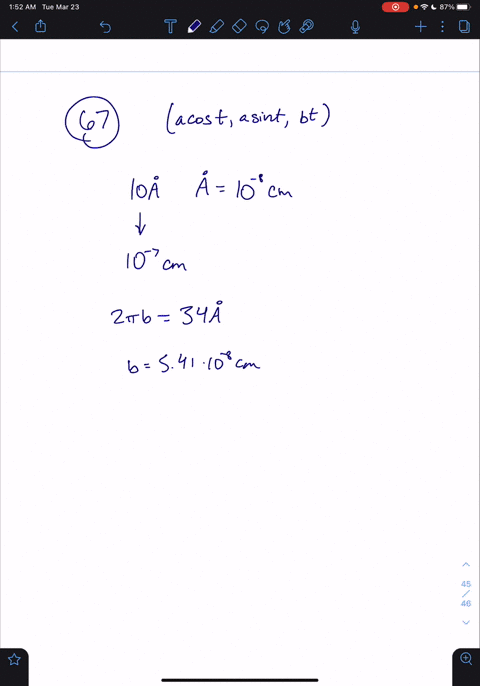 1:52 AM Tue Mar 23
87%
67 (acost, asint, bt)
10Å Å = 10⁻⁸ cm
↓
10⁻⁷ cm
2πb = 34Å
b = 5.41·10⁻⁸ cm
45
/
46